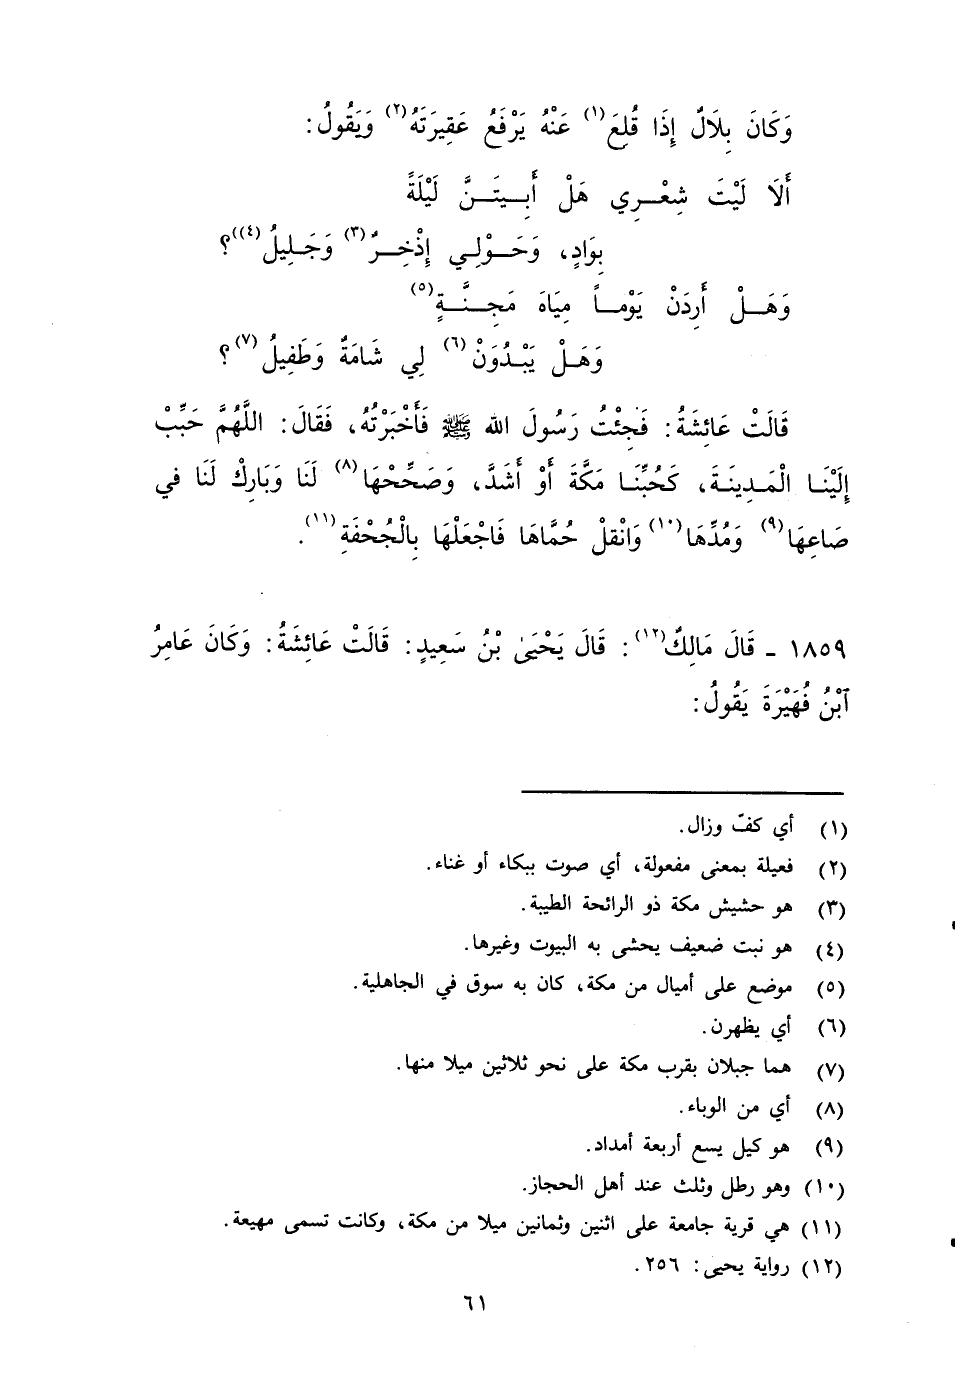 وَكَانَ بِلَالٌ إِذَا قُلِعَ(١) عَنْهُ يَرْفَعُ عَقِيرَتَهُ(٢) وَيَقُولُ:
أَلَا لَيْتَ شِعْـرِي هَلْ أَبِـيتَـنَّ لَيْلَةً
بِوَادٍ، وَحَـوْلِـي إِذْخِـرٌ(٣) وَجَـلِيلُ(٤))؟
وَهَـلْ أَرِدَنْ يَوْمـاً مِيَاهَ مَجِـنَّـةٍ(٥)
وَهَـلْ يَبْـدُوَنْ(٦) لِي شَامَةٌ وَطَفِيلُ(٧)؟
قَالَتْ عَائِشَةُ: فَجِئْتُ رَسُولَ الله ﷺ فَأَخْبَرْتُهُ، فَقَالَ: اللَّهُمَّ حَبِّبْ
إِلَيْنَـا الْمَـدِينَـةَ، كَحُبِّنَـا مَكَّةَ أَوْ أَشَدَّ، وَصَحِّحْهَا(٨) لَنَا وَبَارِكْ لَنَا في
صَاعِهَا(٩) وَمُدِّهَا(١٠) وَانْقلْ حُمَّاهَا فَاجْعَلْهَا بِالْجُحْفَةِ(١١).
١٨٥٩ - قَالَ مَالِكٌ(١٢): قَالَ يَحْيَىٰ بْنُ سَعِيدٍ: قَالَتْ عَائِشَةُ: وَكَانَ عَامِرُ
ٱبْنُ فُهَيْرَةَ يَقُولُ:
(١) أي كفّ وزال.
(٢) فعيلة بمعنى مفعولة، أي صوت ببكاء أو غناء.
(٣) هو حشيش مكة ذو الرائحة الطيبة.
(٤) هو نبت ضعيف يحشى به البيوت وغيرها.
(٥) موضع على أميال من مكة، كان به سوق في الجاهلية.
(٦) أي يظهرن.
(٧) هما جبلان بقرب مكة على نحو ثلاثين ميلا منها.
(٨) أي من الوباء.
(٩) هو كيل يسع أربعة أمداد.
(١٠) وهو رطل وثلث عند أهل الحجاز.
(١١) هي قرية جامعة على اثنين وثمانين ميلا من مكة، وكانت تسمى مهيعة.
(١٢) رواية يحيى: ٢٥٦.
٦١